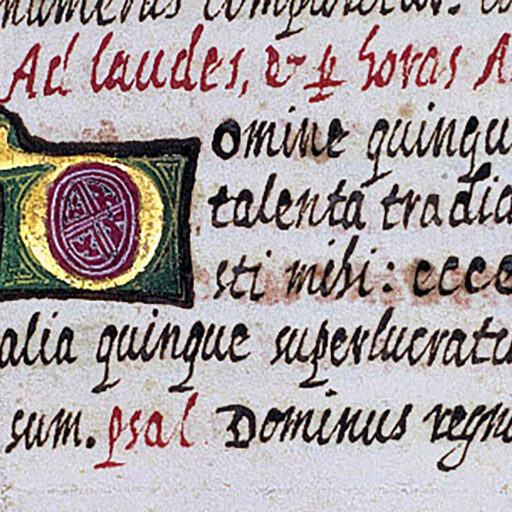 numerus comparetur. co
Ad laudes, & p̲ horas A
Domine quinqu
talenta tradid
sti mihi: ecce
alia quinque superlucratu
sum. psal Dominus regna